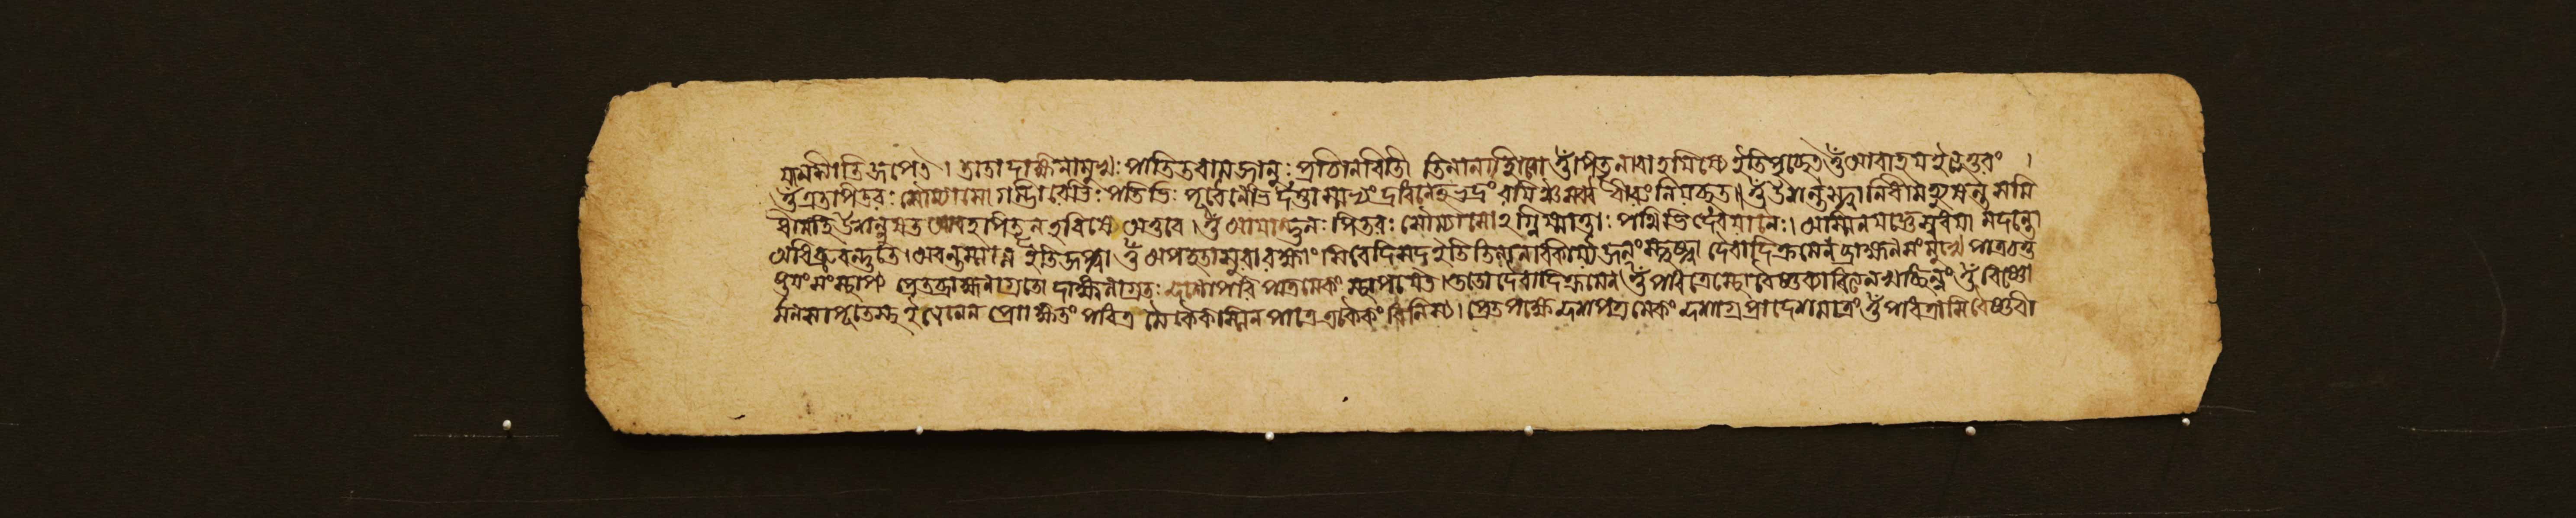 জপেৎ । ততো দক্ষিণামুখঃ পাতিতবামজানুঃ প্রাচীনাবীতী ওঁ পিতৄনাবাহয়িষ্যে ইতি পৃচ্ছেৎ ওঁ আবাহয় ইত্যুত্তরং ।
ওঁ এত পিতরঃ সোম্যাসো গম্ভীরেভিঃ পথিভিঃ পূর্বিণেভির্দত্তাস্মভ্যং দ্রবিণেহ ভদ্রং রয়িঞ্চ নঃ সর্ববীরং নিযচ্ছত॥ ওঁ উশন্তস্ত্বা নিধীমহ্যুশন্তঃ সমি
ধীমহি উশন্নুশত আবহ পিতৄন হবিষে অত্তবে । ওঁ আয়ান্তু নঃ পিতরঃ সোম্যাসোঽগ্নিষ্বাত্তাঃ পথিভির্দেবয়ানৈঃ। অস্মিন যজ্ঞে স্বধয়া মদন্তো
অধিব্রুবন্তু তে। অবন্ত্বস্মান্ ইতি জপ্ত্বা ওঁ অপহতাসুরা রক্ষাংসি বেদিষদ ইতি তিলান্ বিকীর্য্য জলং স্পৃষ্ট্বা দেবাদিক্রমেণ ব্রাহ্মণসংমুখে পাত্রচতু
ষ্টয়ং সংস্থাপ্য প্রেতব্রাহ্মণাগ্রতো দক্ষিণাগ্রতঃ পাত্রমেকং স্থাপয়েৎ। ততো দেবাদিক্রমেণ ওঁ পবিত্রে স্থো বৈষ্ণব্যাবিত্যনেন ছিন্নং ওঁ বিষ্ণো
র্মনসাপূতেস্থ ইত্যনেন প্রোক্ষিতং পবিত্রমেকৈকস্মিন পাত্রে একৈকং প্রেতপক্ষে প্রাদেশমাত্রং ওঁ পবিত্রাসি বৈষ্ণবী